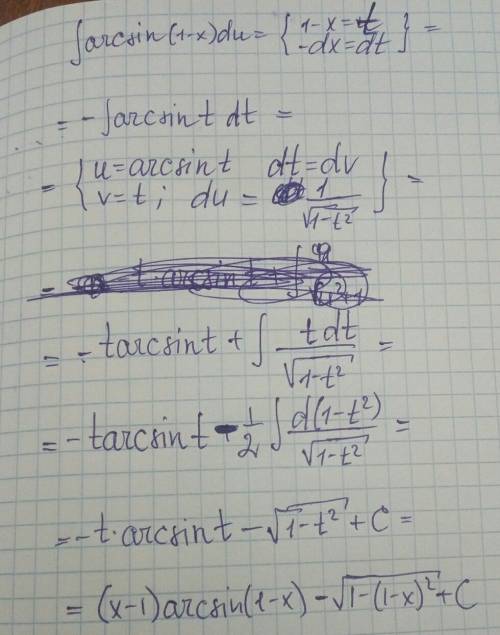 ∫arcsin(1-x)du = { 1-x=t -dx=dt } =
= -∫arcsint dt =
= { u=arcsint dt=dv v=t; du= 1/√(1-t²) } =
= -tarcsint + ∫ tdt/√(1-t²) =
= -tarcsint - 1/2 ∫ d(1-t²)/√(1-t²) =
= -t·arcsint - √(1-t²) + C =
= (x-1)arcsin(1-x) - √(1-(1-x)²) + C